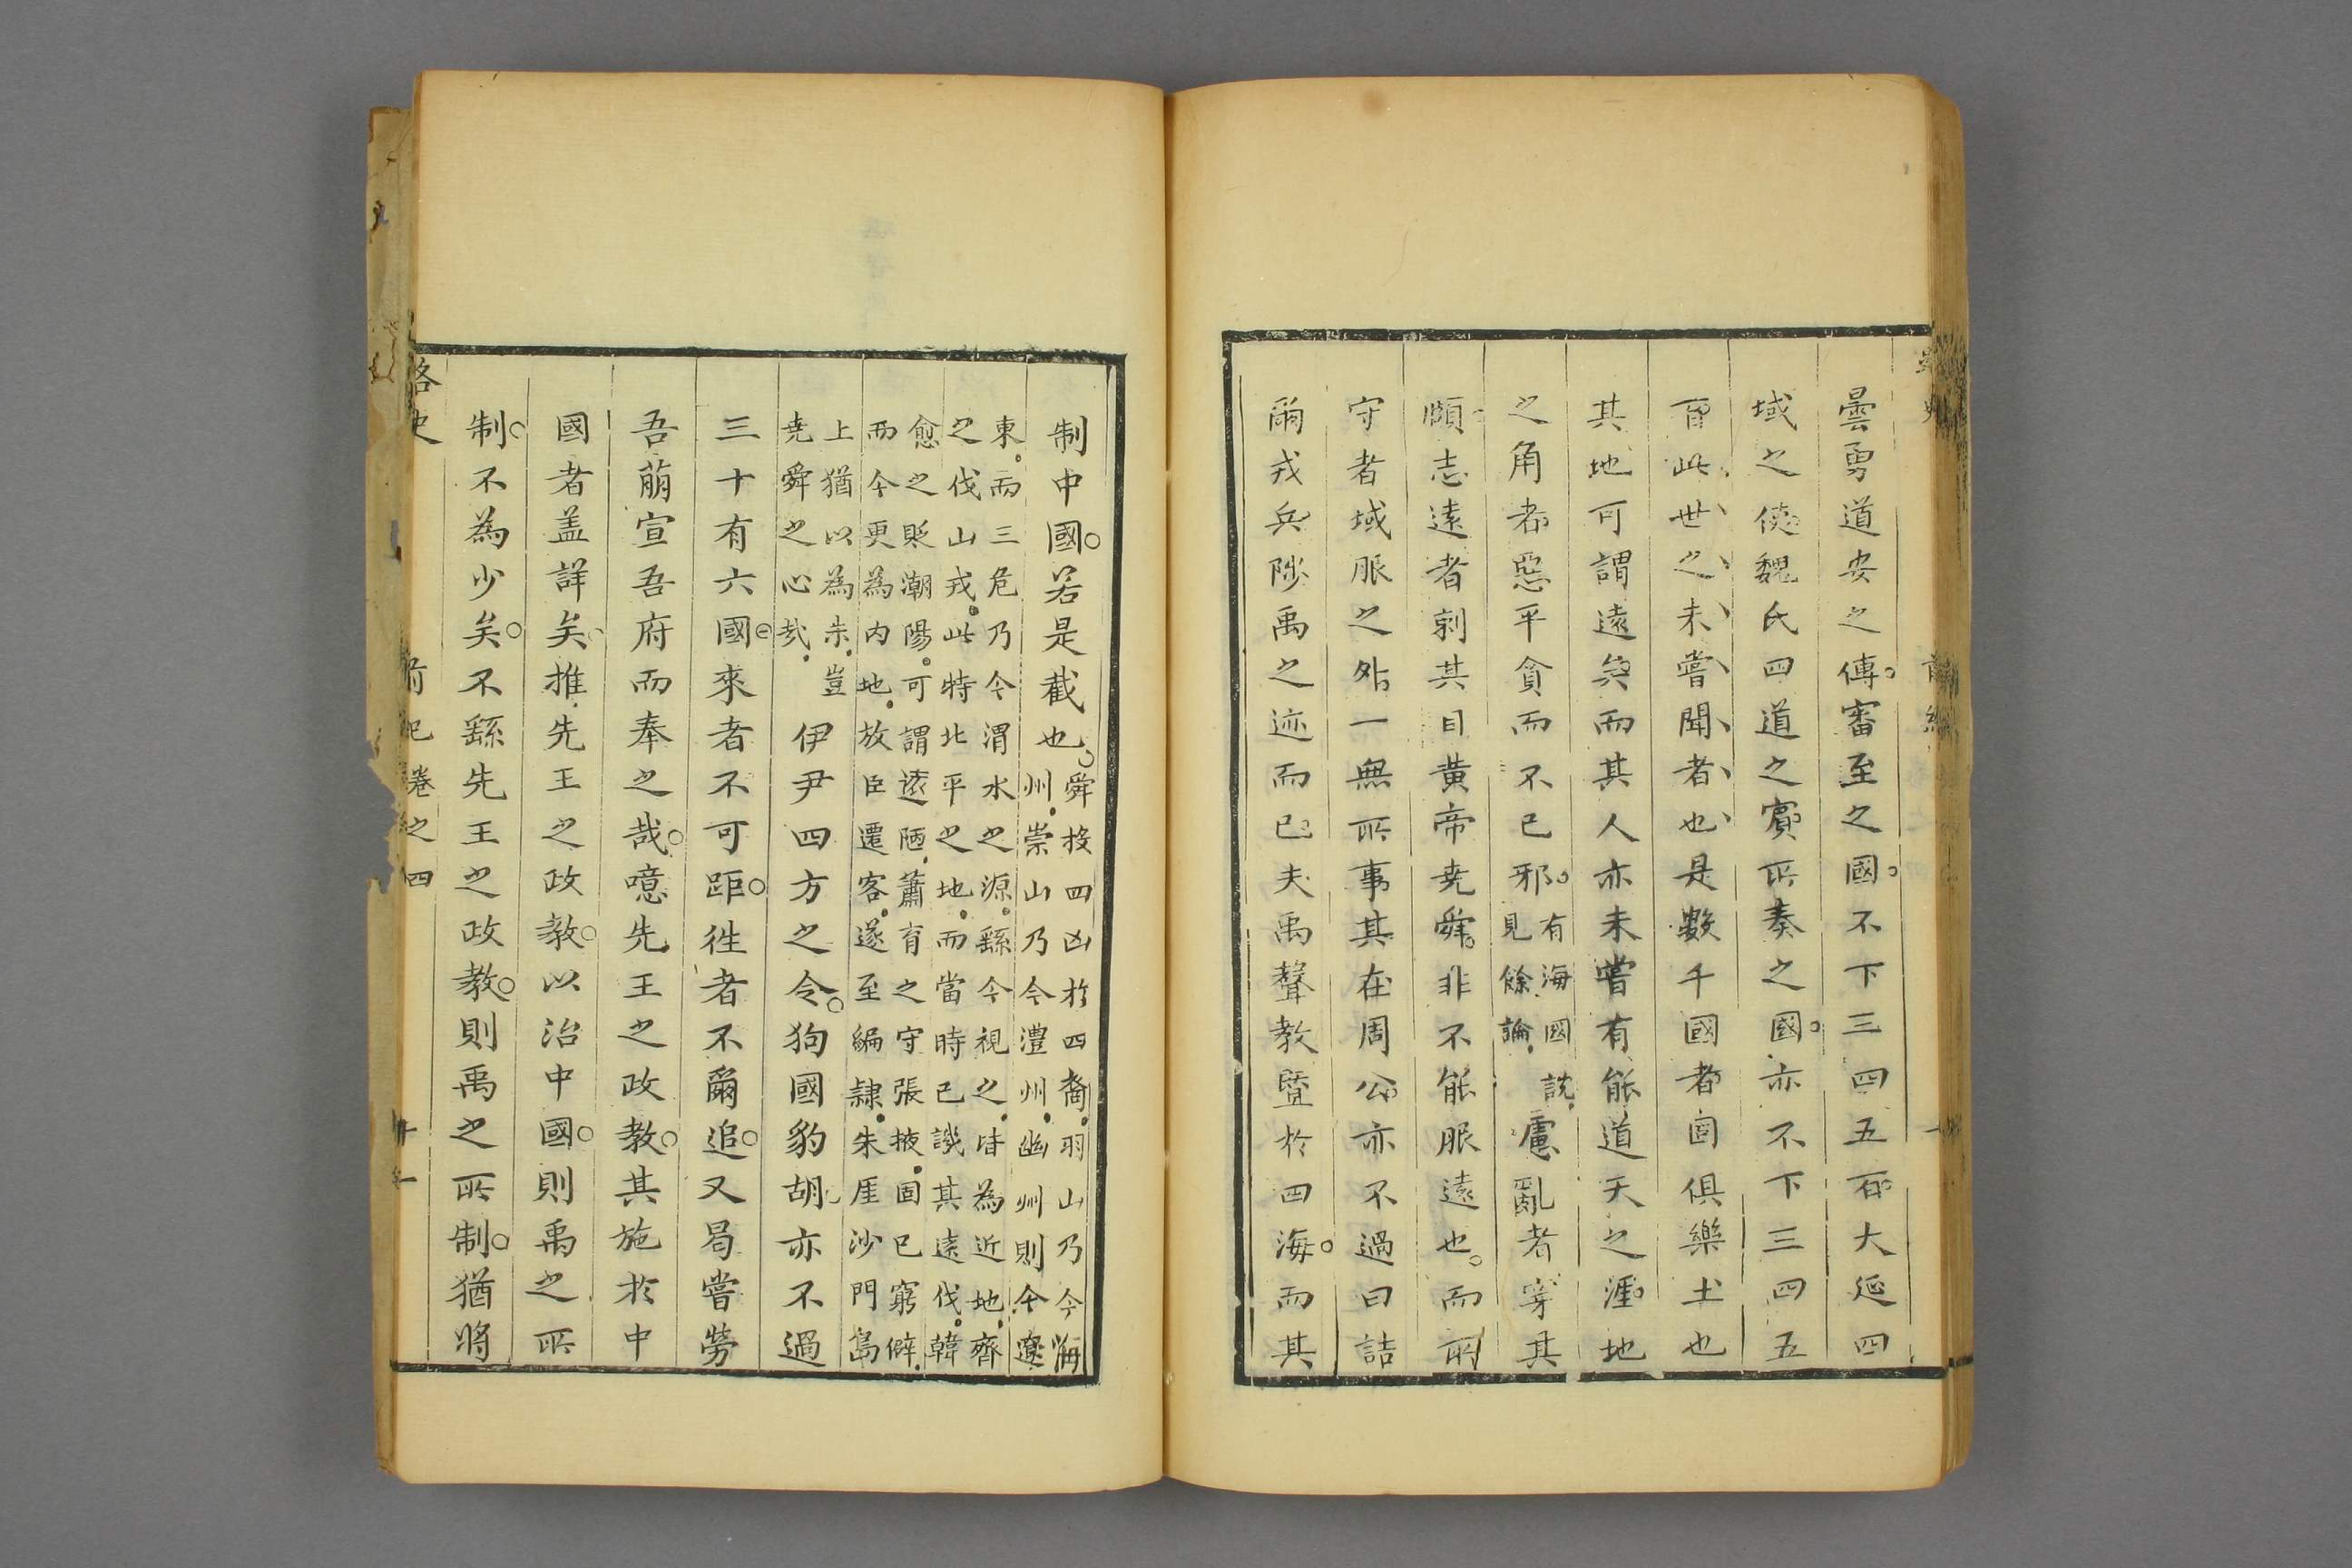 曇勇道安之傳審至之國不下三四五百大延四
域之使魏氏四道之賓所奏之國亦不下三四五
百此世之未嘗聞者也是數千國者固俱樂土也
其地可謂遠矣而其人亦未嘗有能道天之涯地
之角者惡乎貪而不已邪
有海國說
見餘論
慮亂者寧其
願志遠者剥其目黄帝尭舜非不能服遠也而所
守者域服之外一無所事其在周公亦不過曰詰
爾戎兵陟禹之迹而已夫禹聲教曁於四海而其
制中國若是截也
舜投四凶於四裔羽山乃今海
州崇山乃今澧州幽州則今遼
東而三危乃今渭水之源繇今視之皆為近地齊
之伐山戎此特北平之地而當時已譏其遠伐韓
愈之貶潮陽可謂逺陋蕭育之守張掖固已窮僻
而今更為内地放臣遷客遂至編隷朱厓沙門島
上猶以為未豈
尭舜之心哉
伊尹四方之令狗國豹胡亦不過
三十有六國來者不可距徃者不爾追又曷嘗勞
吾萠宣吾府而奉之哉噫先王之政教其施於中
國者盖詳矣推先王之政教以治中國則禹之所
制不為少矣不繇先王之政教則禹之所制猶將
路史
前紀卷之四